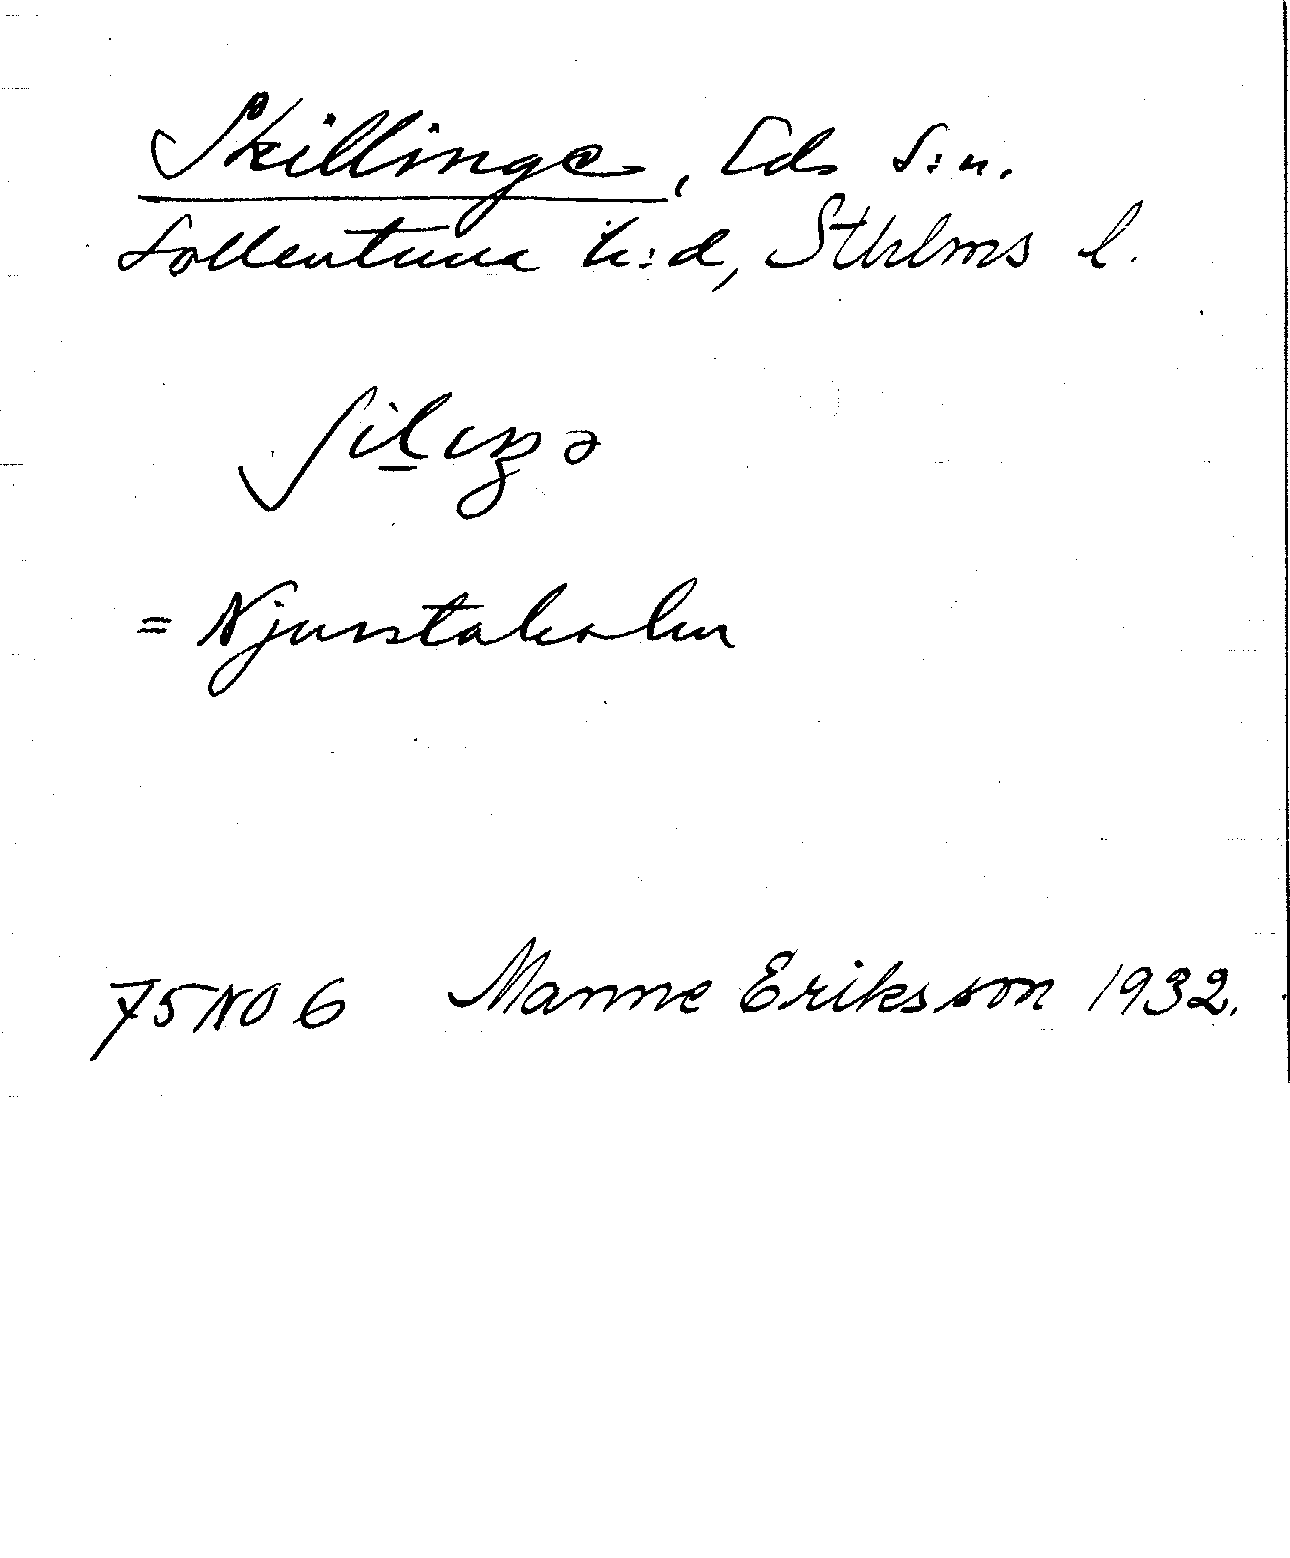 Skillinge, Eds s:n.
Sollentuna h:d, Sthlms l.
ʃil̲iŋə
= Njurstaholm
75 NO 6 Manne Eriksson 1932.